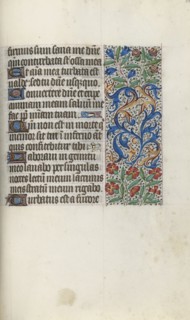 firmus sum sana me dñe
qm conturbata st ossa mea
Et aīa mea turbata est
valde sed tu dñe usquequo
Convertere dñe et eripe
animam meam salvum me
fac ppt miām tuam
Qm non est in morte q
memor sit tui in inferno āt
quis confitebitur tibi
Laboravi in gemitu
meo lavabo per singulas
noctes lectū meum lacrimis
meis stratū meum rigabo
Turbatus est a furore